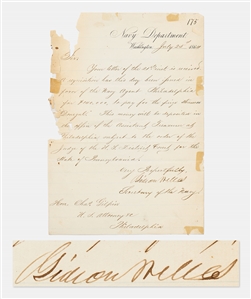 175
Navy Department
Washington, July 22d 1864
Sir:
Your letter of the 20th inst. is received
A requisition has this day been issued in
favor of the Navy Agent Philadelphia
for $ to pay for the prize Steamer
This money will be deposited in
the office of the Assistant Treasurer at
Philadelphia subject to the order of the
Judge of the U. S. District Court for the
State of Pennsylvania.
Very Respectfully
Gideon Welles
Secretary of the Navy
Hon. Chas. Gilpin
U. S. Attorney &c
Philadelphia
Gideon Welles